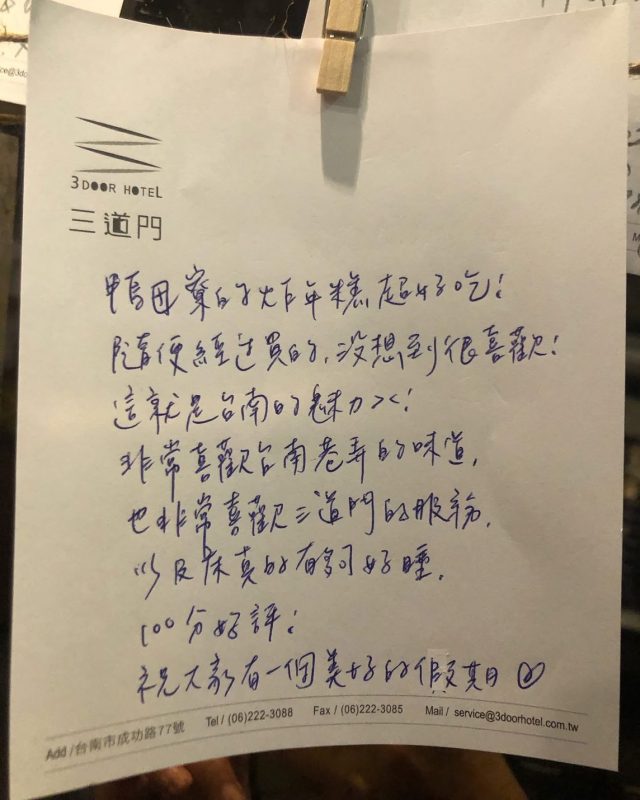 3 DOOR HOTEL
三道門
鴨母寮的炸年糕超好吃!
隨便經过買的,沒想到很喜歡!
這就是台南的魅力ㄡ!
非常喜歡台南巷弄的味道,
也非常喜歡三道門的服務,
以及床真的有夠好睡,
100分好評!
祝大家有一個美好的假期
Add / 台南市成功路77號 Tel / (06)222-3088 Fax / (06)222-3085 Mail / service@3doorhotel.com.tw